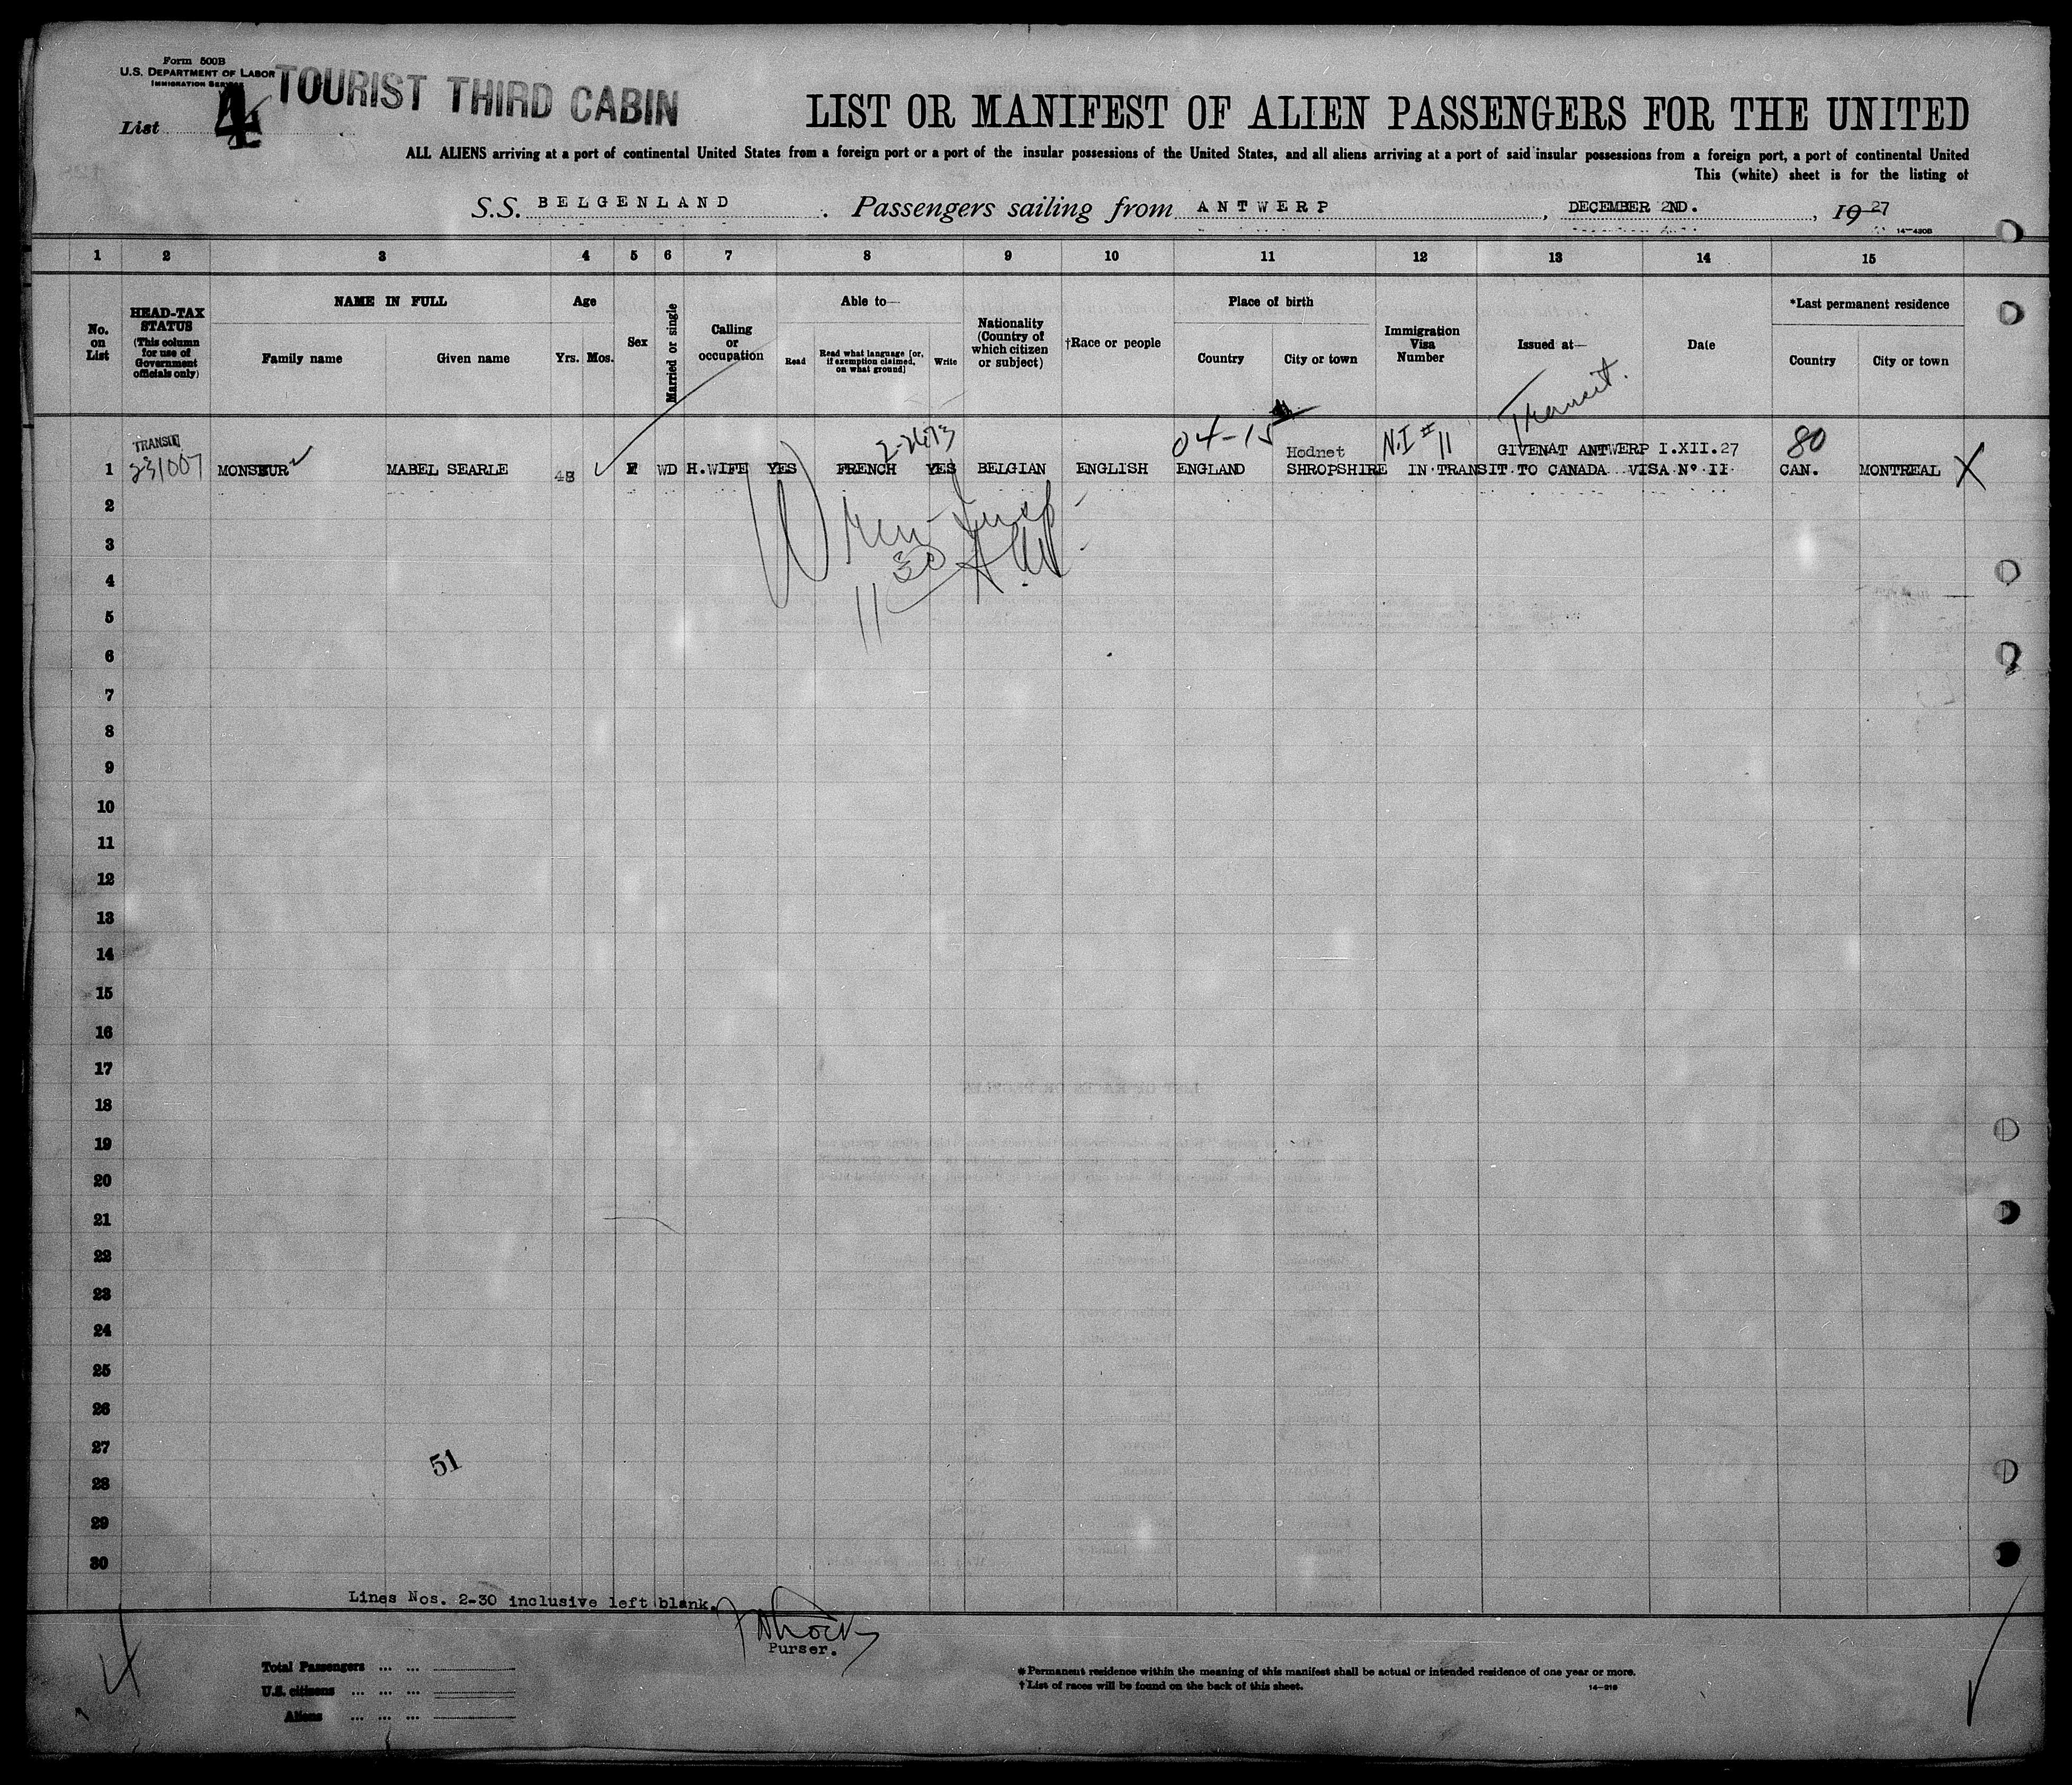 Form 500B
U.S. DEPARTMENT OF LABOR
IMMIGRATION SERVICE
TOURIST THIRD CABIN
List 4
LIST OR MANIFEST OF ALIEN PASSENGERS FOR THE UNITED
ALL ALIENS arriving at a port of continental United States from a foreign port or a port of the insular possessions of the United States, and all aliens arriving at a port of said insular possessions from a foreign port, a port of continental United
This (white) sheet is for the listing of
S.S. BELGENLAND. Passengers sailing from ANTWERP, DECEMBER 2ND., 1927
14—430B
1 2 3 4 5 6 7 8 9 10 11 12 13 14 15
No. on List
HEAD-TAX STATUS (This column for use of Government officials only)
NAME IN FULL
Family name Given name
Age
Yrs. Mos.
Sex
Married or single
Calling or occupation
Able to—
Read
Read what language [or, if exemption claimed, on what ground]
Write
Nationality (Country of which citizen or subject)
†Race or people
Place of birth
Country City or town
Immigration Visa Number
Issued at—
Date
*Last permanent residence
Country City or town
Transit.
TRANSIT 2-2673 04-15 Hodnet N.I # 11 GIVENAT ANTWERP I.XII.27 80
1 231007 MONSEUR MABEL SEARLE 48 F WD H.WIFE YES FRENCH YES BELGIAN ENGLISH ENGLAND SHROPSHIRE IN TRANSIT TO CANADA VISA Nº II CAN. MONTREAL X
2
3
30
4
11
5
6
7
8
9
10
11
12
13
14
15
16
17
18
19
20
21
22
23
24
25
26
27
51
28
29
30
Lines Nos. 2-30 inclusive left blank.
Purser.
4
Total Passengers ... ...
U.S. citizens ... ... ...
Aliens ... ... ...
* Permanent residence within the meaning of this manifest shall be actual or intended residence of one year or more.
† List of races will be found on the back of this sheet.
14—218